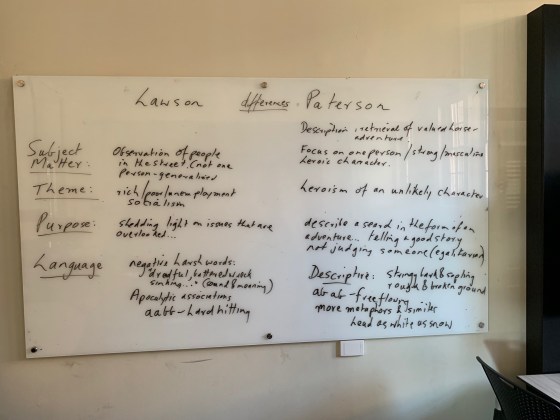 Lawson differences Paterson
Description: retrieval of valued horse-
adventure.
Subject
Matter:
Observation of people
in the street. (not one
person - generalised
Focus on one person / strong / masculine
heroic character.
Theme:
rich/poor/unemployment
socialism
heroism of an unlikely character
Purpose:
shedding light on issues that are
overlooked...
describe a in the form of an
adventure... telling a good story
not judging someone
Language
negative harsh words:
dreadful, battered wreck
sinking... (sound & meaning)
Apocalyptic associations
aabb - hard hitting
Descriptive: stringy bark & sapling
rough & broken ground
abab - free flowing
more metaphors & similes
head as white as snow